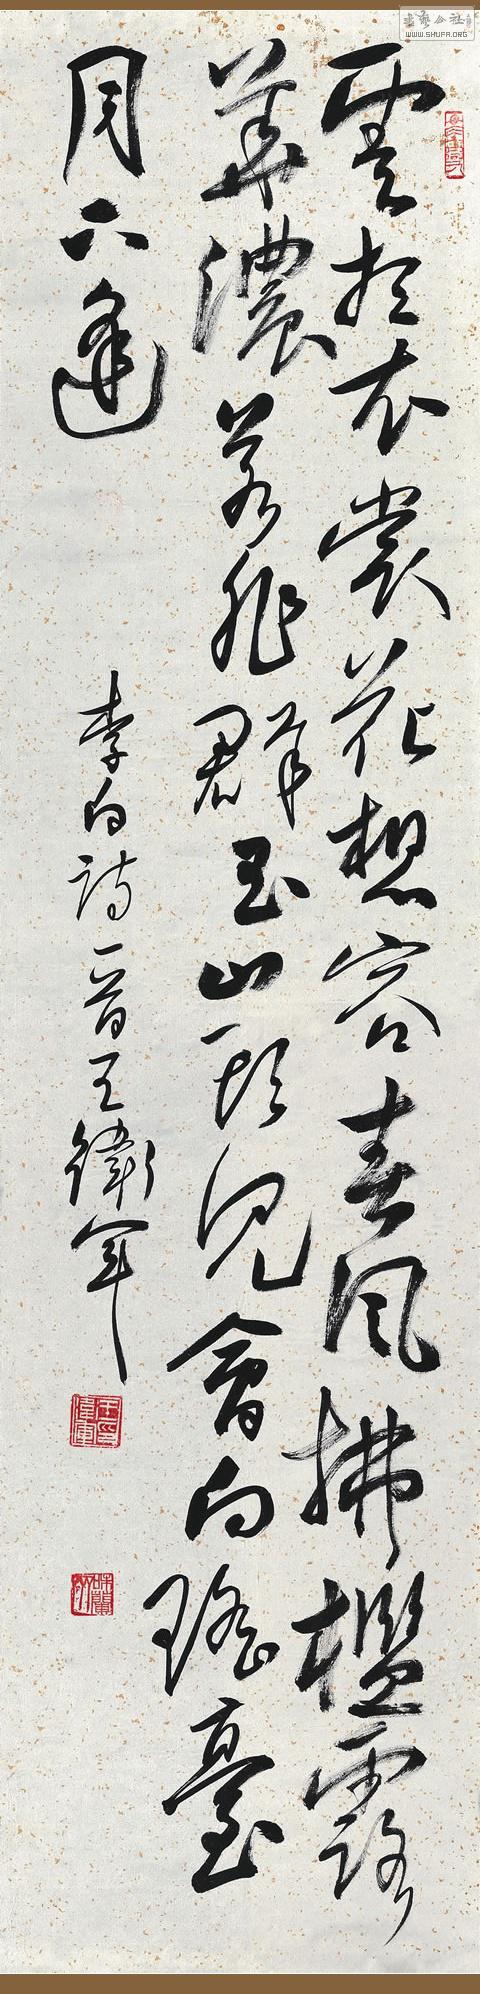 雲想衣裳花想容春風拂檻露
華濃若非群玉山頭見會向瑤臺
月下逢
李白詩 晉王衛軍
書藝公社
WWW.SHUFA.ORG